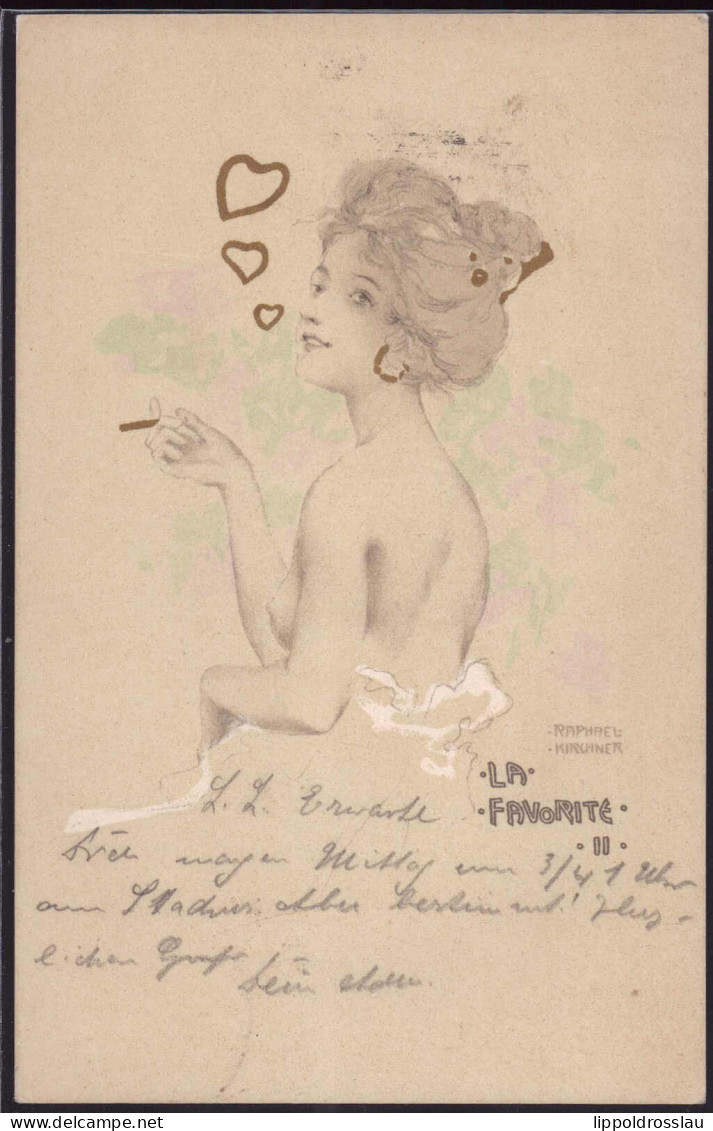 ·RAPHAEL·
·KIRCHNER
·LA·
·FAVORITE·
·II·
L. L. Erwarte
Dich morgen Mittag um 3/4 1 Uhr
am bestimmt! Herz-
lichen Gruß
Dein
lippoldrosslau